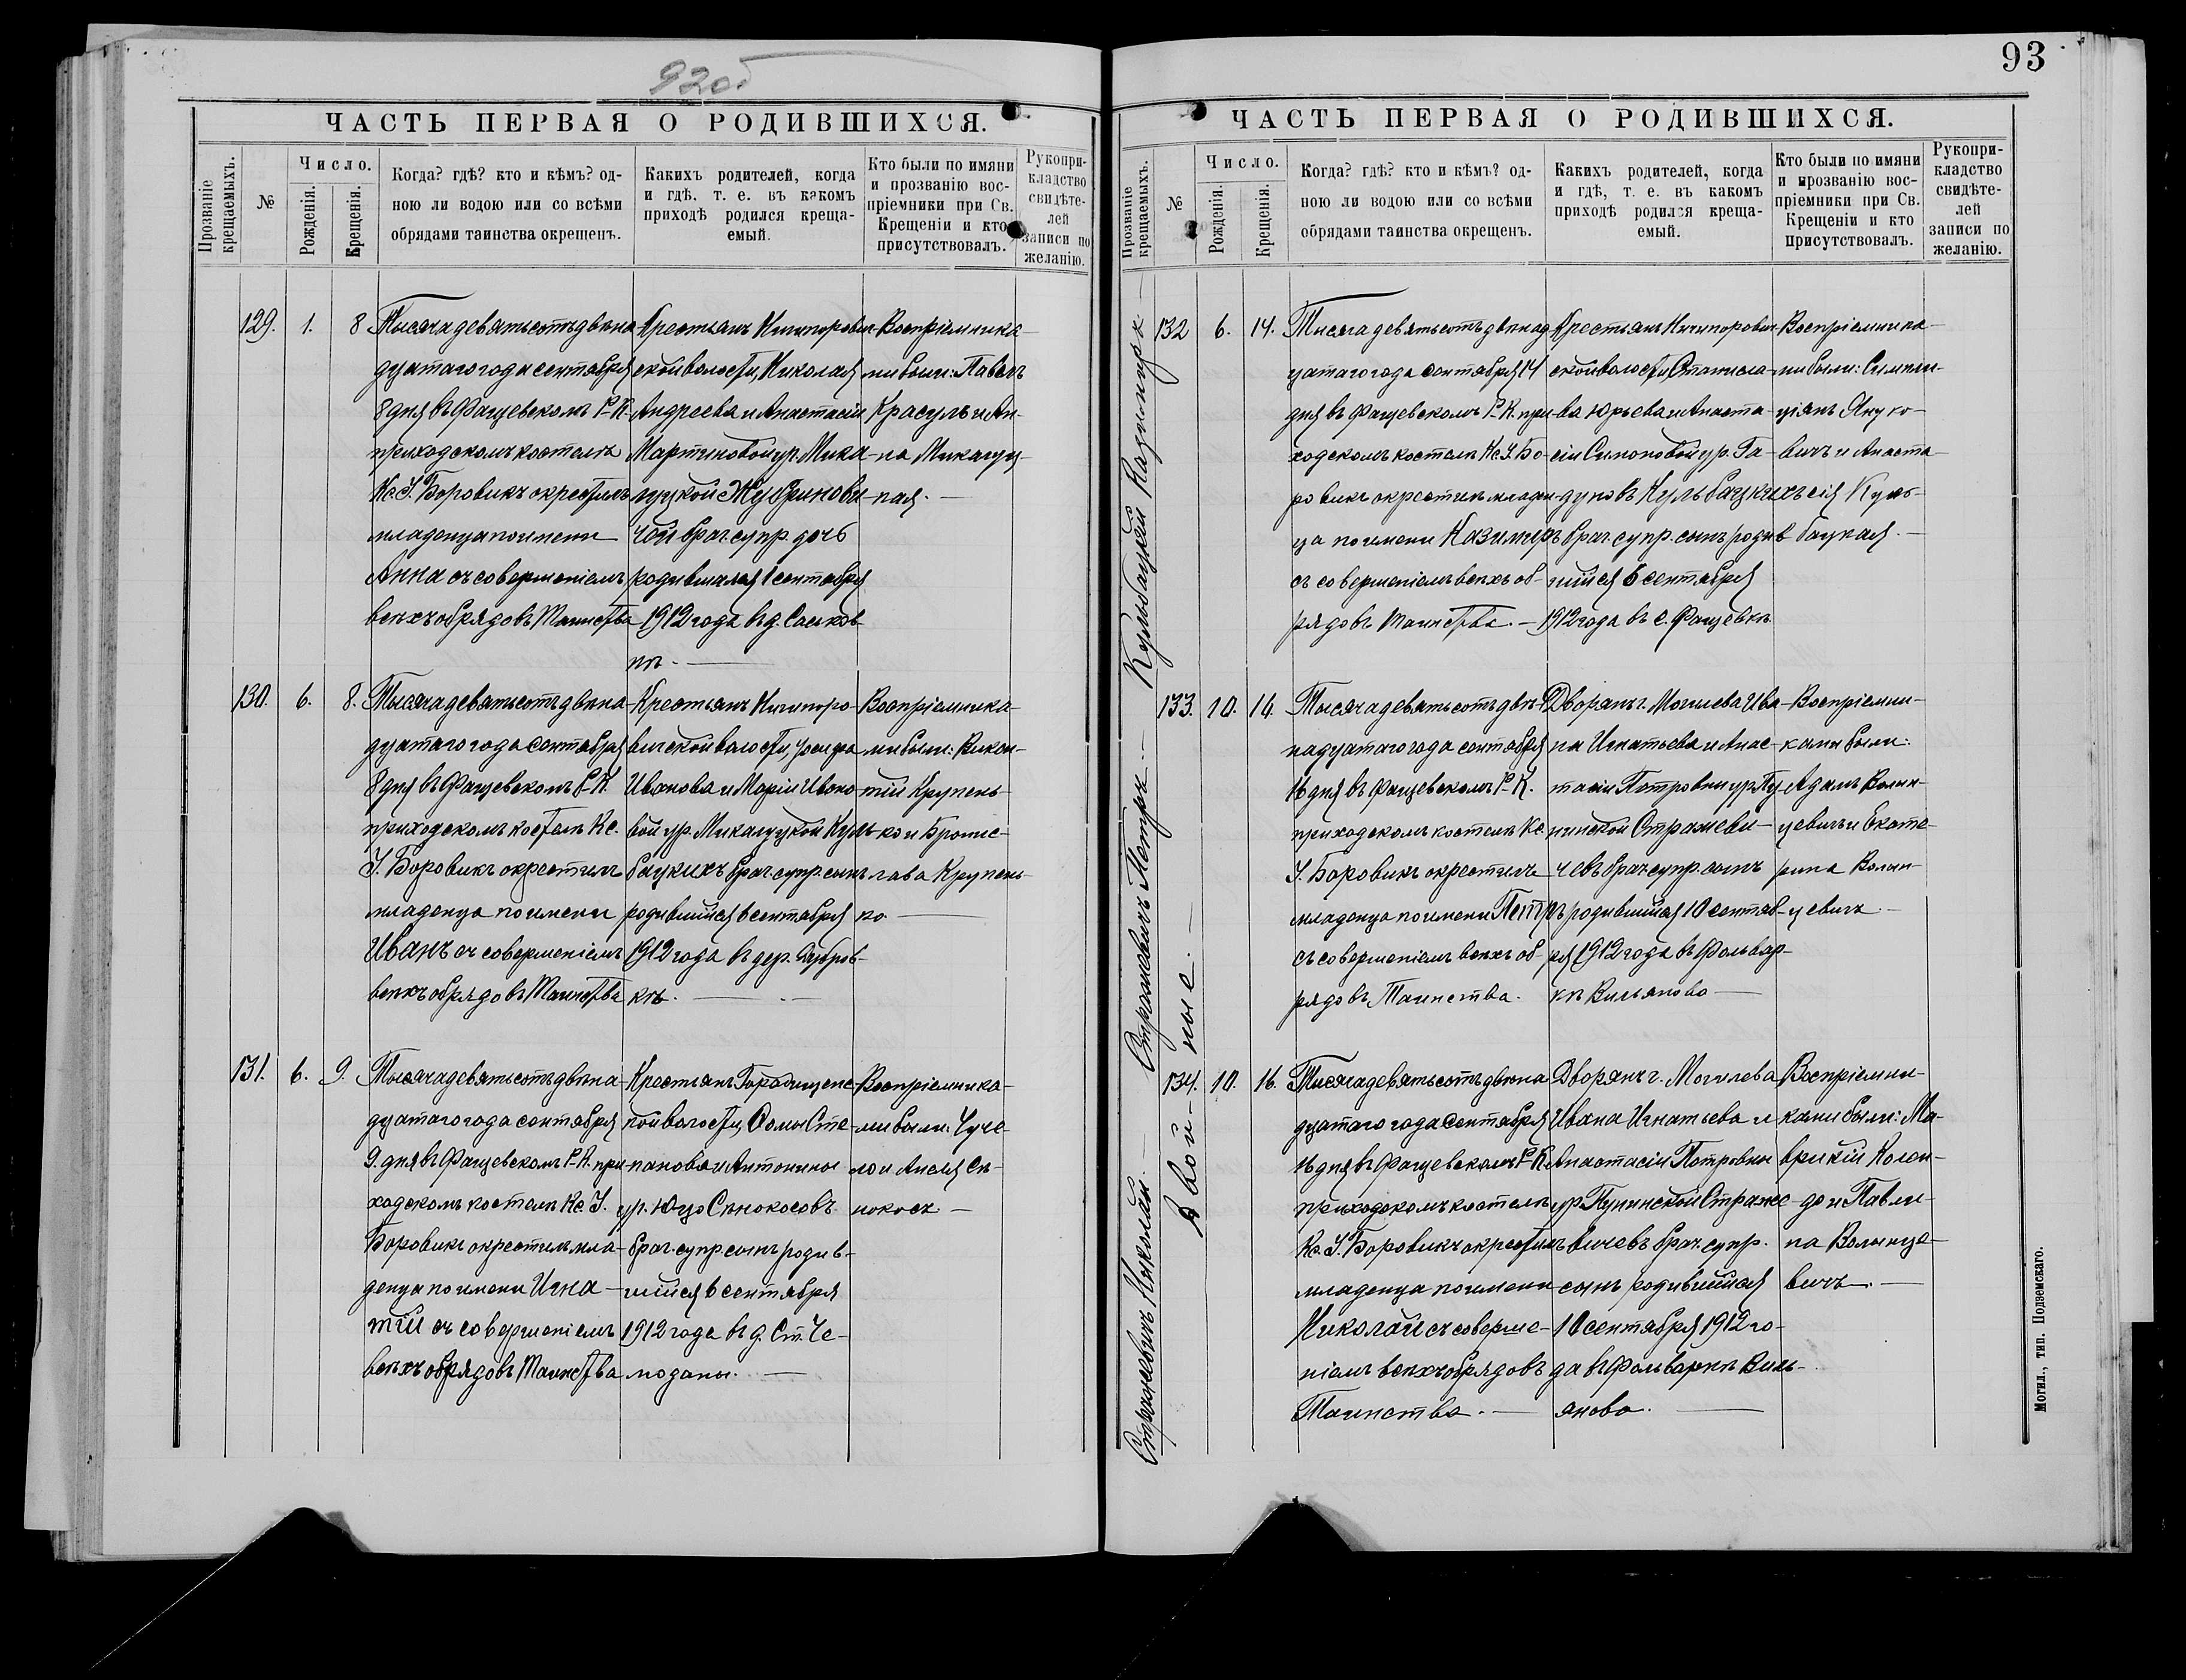 92 об
ЧАСТЬ ПЕРВАЯ О РОДИВШИХСЯ.
Прозваніе крещаемыхъ.
№
Число.
Рожденія.
Крещенія.
Когда? гдѣ? кто и кѣмъ? од-
ною ли водою или со всѣми
обрядами таинства окрещенъ.
Какихъ родителей, когда
и гдѣ, т. е. въ какомъ
приходѣ родился креща-
емый.
Кто были по имяни
и прозванію вос-
пріемники при Св.
Крещеніи и кто
присутствовалъ.
Рукопри-
кладство
свидѣте-
лей
записи по
желанію.
129.
1.
8
Тысяча девятьсотъ двѣна-
дцатаго года сентября
8 дня въ Фащевскомъ Р-К.
приходскомъ костелѣ
Кс. І. Боровикъ окрестилъ
младенца по имени
Анна съ совершеніемъ
всѣхъ обрядовъ Таинства
Крестьянъ Ничипорови-
ской волости, Николая
Андреева и Анастасіи
Мартиновой ур. Мика-
луцкой
брач. супр. дочь
родившаяся 1 сентября
1912 года въ д. Сасков-
кѣ.
Воспріемника-
ми были: Павелъ
Красуль и Ан-
на Микалуц-
кая.
130.
6.
8.
Тысяча девятьсотъ двѣна-
дцатаго года сентября
8 дня въ Фащевскомъ Р-К.
приходскомъ костелѣ Кс.
І. Боровикъ окрестилъ
младенца по имени
Иванъ съ совершеніемъ
всѣхъ обрядовъ Таинства
Крестьянъ Ничипоро-
вичской волости, Іосифа
Иванова и Маріи Ивано-
вой ур. Микалуцкой Куль-
бацкихъ брач. супр. сынъ
родившійся 6 сентября
1912 года въ дер. Дубров-
кѣ.
Воспріемника-
ми были: Викен-
тій Крупень-
ко и Бронис-
лава Крупень-
ко
131.
6.
9.
Тысяча девятьсотъ двѣна-
дцатаго года сентября
9. дня въ Фащевскомъ Р-К. при-
ходскомъ костелѣ Кс. І.
Боровикъ окрестилъ мла-
денца по имени Игна-
тій съ совершеніемъ
всѣхъ обрядовъ Таинства
Крестьянъ Городищенс-
кой волости, Ѳомы Сте-
панова и Антонины
ур. Юцо Сѣнокосовъ
брач. супр. сынъ родив-
шійся 6 сентября
1912 года въ д. Ст. Че-
моданы.
Воспріемника-
ми были:
Сѣ-
нокосъ
93
ЧАСТЬ ПЕРВАЯ О РОДИВШИХСЯ.
Прозваніе крещаемыхъ.
№
Число.
Рожденія.
Крещенія.
Когда? гдѣ? кто и кѣмъ? од-
ною ли водою или со всѣми
обрядами таинства окрещенъ.
Какихъ родителей, когда
и гдѣ, т. е. въ какомъ
приходѣ родился креща-
емый.
Кто были по имяни
и прозванію вос-
пріемники при Св.
Крещеніи и кто
присутствовалъ.
Рукопри-
кладство
свидѣте-
лей
записи по
желанію.
Кульбацкій Казимиръ
132
6.
14.
Тысяча девятьсотъ двѣнад-
цатаго года сентября 14
дня въ Фащевскомъ Р-К. при-
ходскомъ костелѣ Кс. І. Бо-
ровикъ окрестилъ младен-
ца по имени Казимиръ
съ совершеніемъ всѣхъ об-
рядовъ таинства.
Крестьянъ Ничипорович-
ской волости, Станисла-
ва Юрьева и Анаста-
сіи Симоновой ур. Га-
дуновъ Кульбацкихъ
брач. супр. сынъ родив-
шійся 6 сентября
1912 года въ с. Фащевкѣ
Воспріемника-
ми были: Симпли-
ціянъ Януко-
вичъ и Анаста-
сія Куль-
бацкая.
Стражевичъ Петръ
133.
10.
16.
Тысяча девятьсотъ двѣ-
надцатаго года сентября
16 дня въ Фащевскомъ Р-К.
приходскомъ костелѣ Кс.
І. Боровикъ окрестилъ
младенца по имени Петръ
съ совершеніемъ всѣхъ об-
рядовъ Таинства.
Дворянъ г. Могилева Ива-
на Игнатьева и Анас-
тасіи Петровны ур. Пу-
нинской Стражеви-
чевъ брач. супр. сынъ
родившійся 10 сентяб-
ря 1912 года въ Фольвар-
кѣ Вильяново
Воспріемни-
ками были:
Адамъ Волын-
цевичъ и Екате-
рина Волын-
цевичъ.
Двой-
ные.
Стражевичъ Николай.
134.
10.
16.
Тысяча девятьсотъ двѣна-
дцатаго года сентября
16 дня въ Фащевскомъ Р-К.
приходскомъ костелѣ
Кс. І. Боровикъ окрестилъ
младенца по имени
Николай съ соверше-
ніемъ всѣхъ обрядовъ
Таинства.
Дворянъ г. Могилева
Ивана Игнатьева и
Анастасіи Петровны
ур. Пунинской Страже-
вичевъ брач. супр.
сынъ родившійся
10 сентября 1912 го-
да въ Фольваркѣ Виль-
яново.
Воспріемни-
ками были: Ма-
врикій Колен-
до и Павли-
на Волынце-
вичъ.
Могил., тип. Подземскаго.